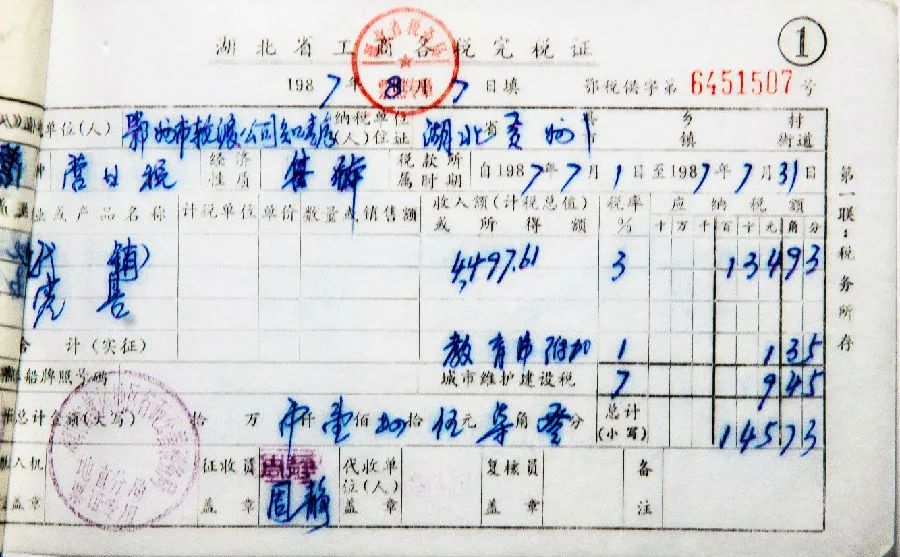 湖北省工商各税完税证 ①
1987年8月7日填 鄂税侯字第6451507号
单位(人) 鄂州市轮渡公司知青店 纳税单位(人)位证 湖北省黄州县 乡镇 村街道
营业税 经济性质 集体 税款所属时期 自1987年7月1日至1987年7月31日
业或产品名称 计税单位 单价 数量或销售额 收入额(计税总值)或所得额 税率% 应纳税额
十万千百十元角分
代销 4,497.61 3 13493
合计(实征) 教育费附加 1 135
船牌照号码 城市维护建设税 7 945
总计金额(大写) 拾万仟壹佰肆拾伍元柒角叁分 总计(小写) 14573
人机 盖章 征收员盖章 周静 代收单位(人)盖章 复核员盖章 备注
第一联:税务所存
地直分局